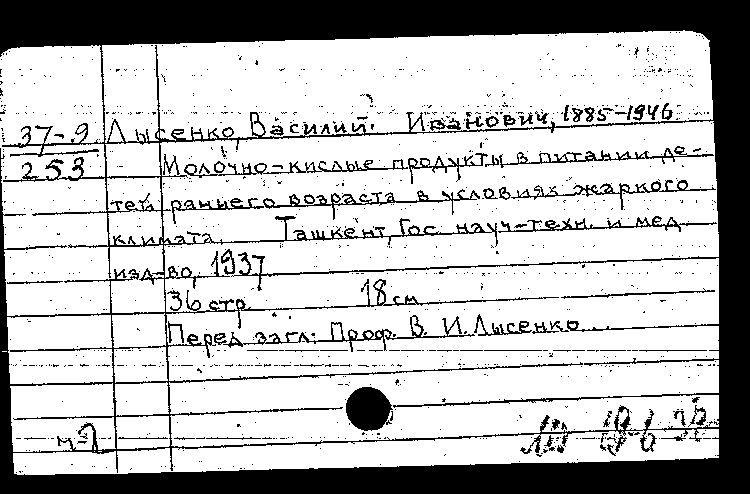 37-9 Лысенко, Василий Иванович, 1885-1946
253 Молочно-кислые продукты в питании де-
тей раннего возраста в условиях жаркого
климата. Ташкент, Гос. науч-техн. и мед.
изд-во, 1937
36 стр. 18 см
Перед загл: Проф. В. И. Лысенко